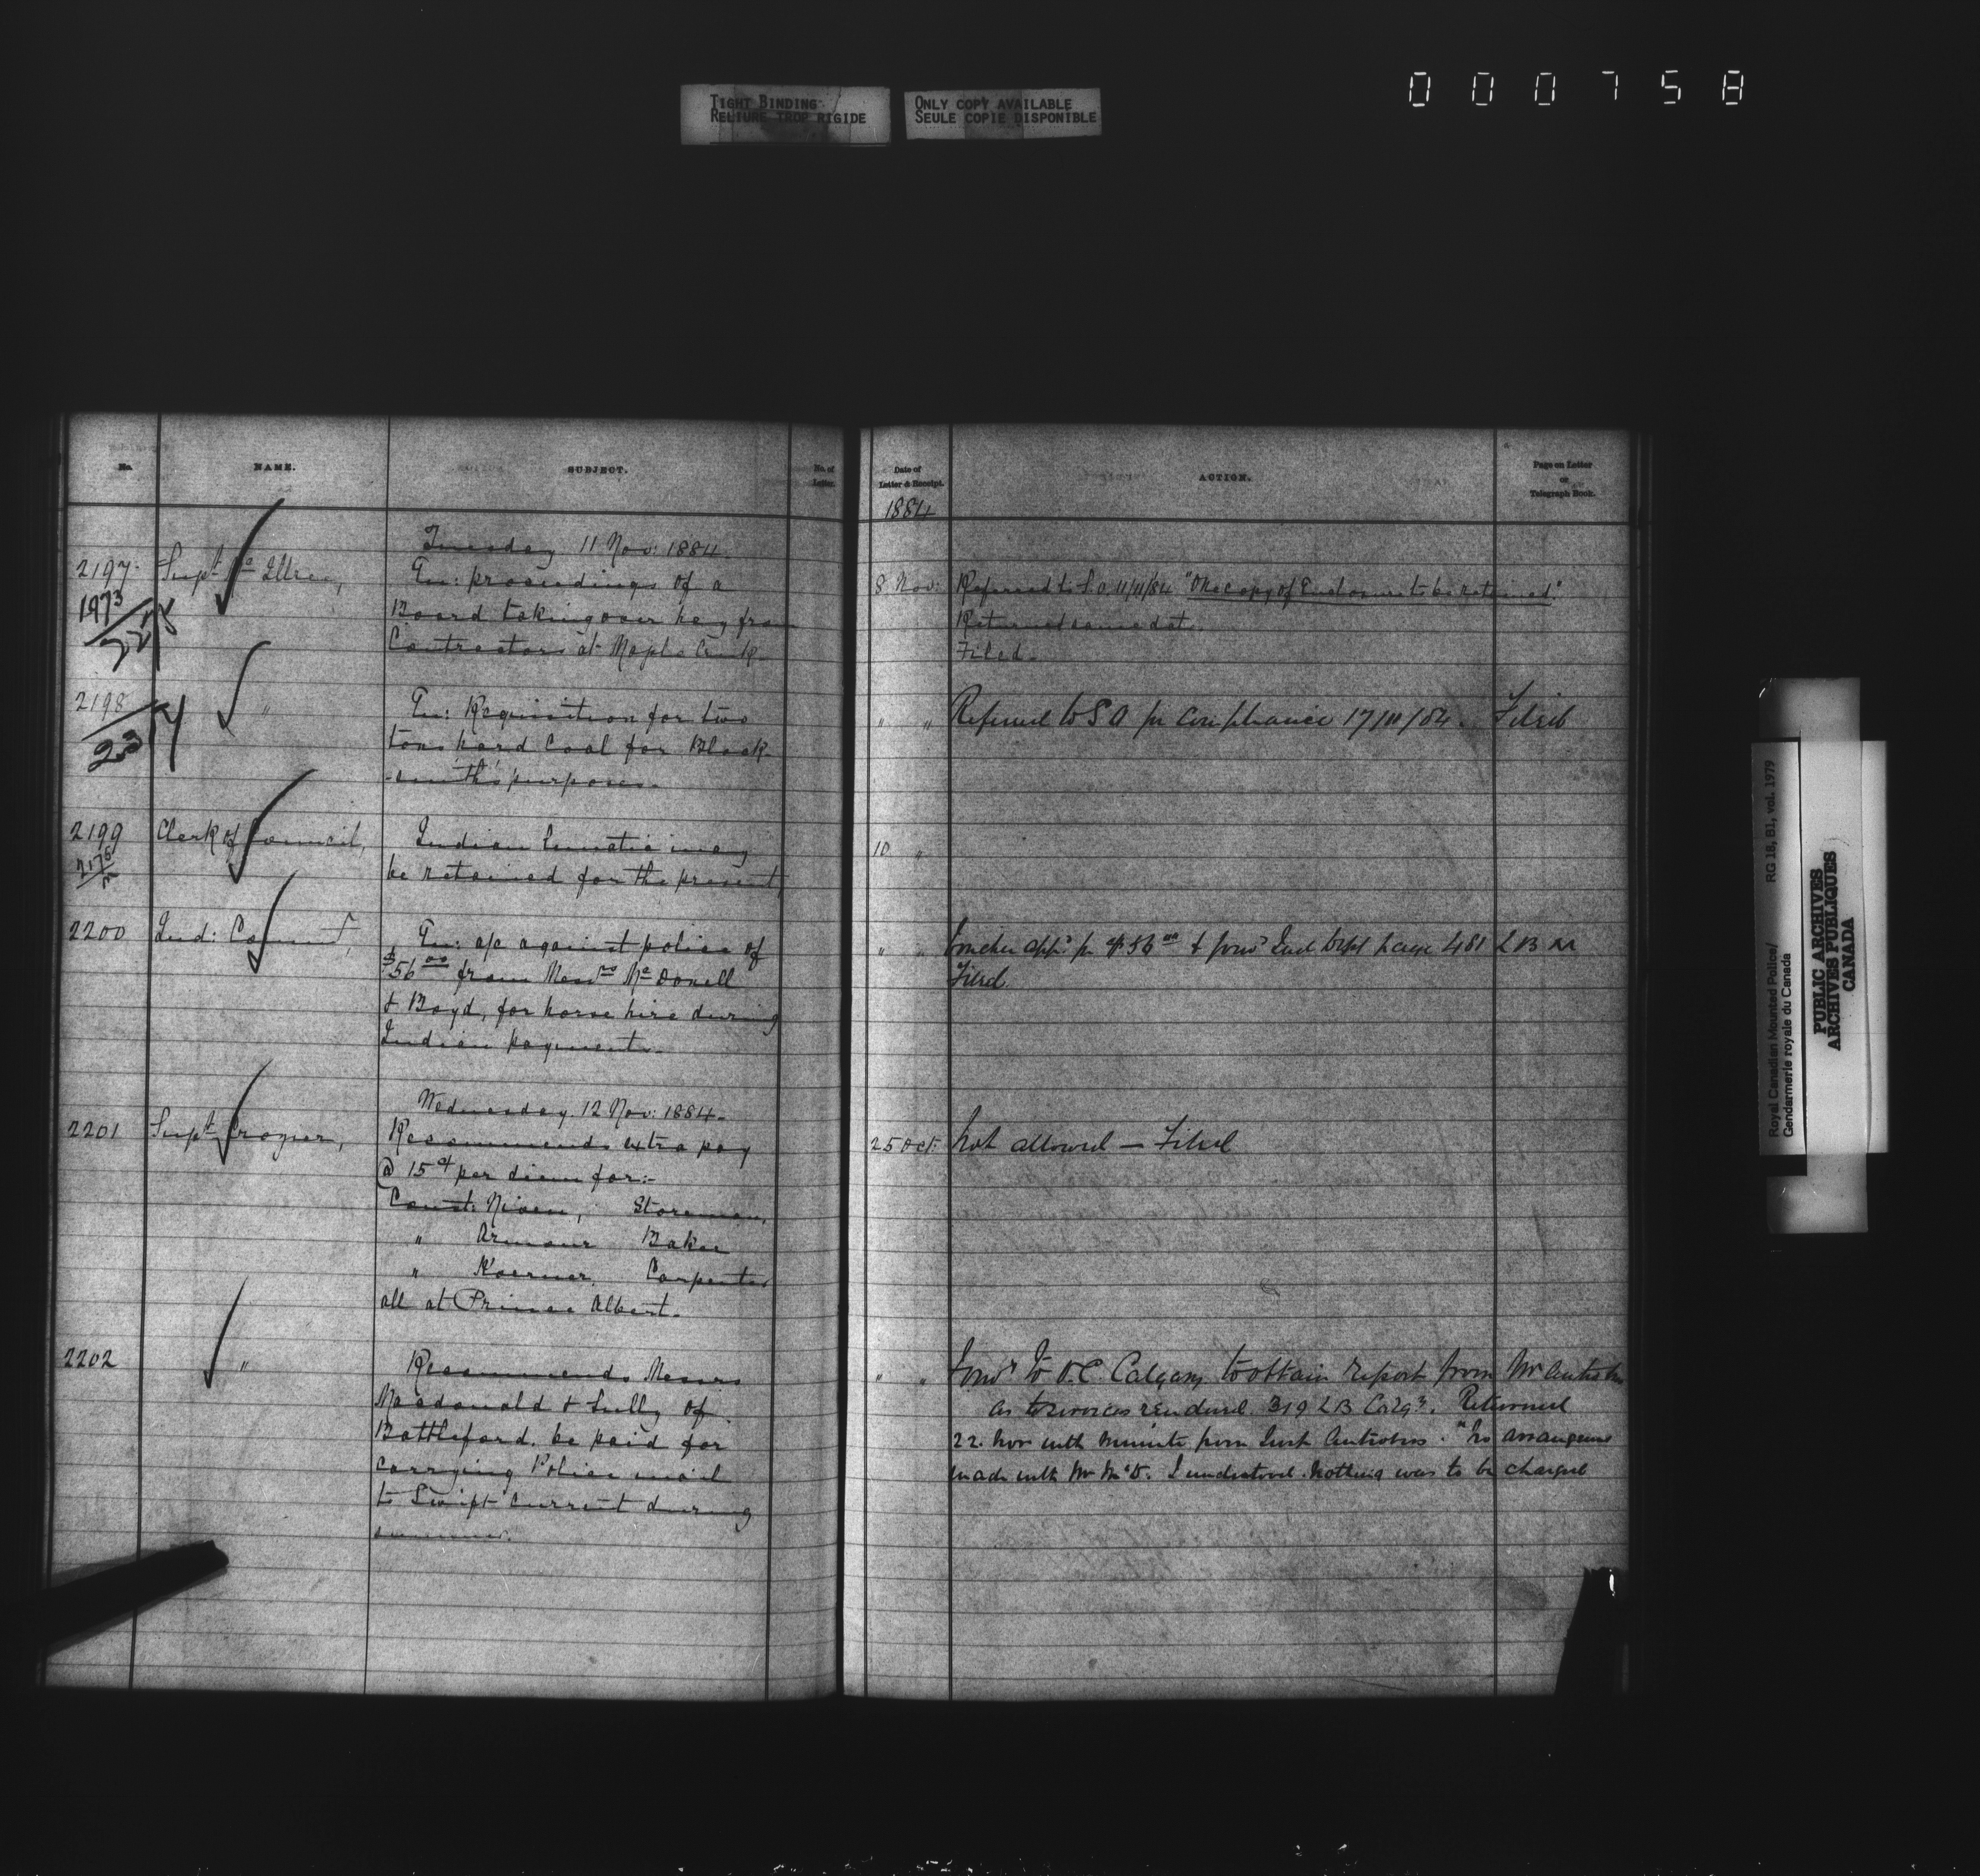 000758
TIGHT BINDING
RELIURE TROP RIGIDE
ONLY COPY AVAILABLE
SEULE COPIE DISPONIBLE
No.
NAME.
SUBJECT.
No. of
Letter.
Tuesday 11 Nov: 1884.
2197
Supt Mc Illree,
En: proceedings of a
1973
Board taking over hay from
Contractors at Maple Creek.
2198
"
En: Requisition for two
23
tons hard coal for Black-
-smith's purposes.
2199
Clerk of Council,
Indian lunatic may
be retained for the present
2200
Ind: Comm
En: a/c against police of
$56.00 from Messrs McDonell
& Boyd, for horse hire during
Indian payments.
Wednesday 12 Nov: 1884.
2201
Supt Crozier,
Recommends extra pay
@ 15 cts per diem for:-
Const: Niven, Storeman,
" Armour Baker
" Koerner, Carpenter
all at Prince Albert.
2202
"
Recommends Messrs
Macdonald & Sully of
Battleford, be paid for
carrying Police mail
to Swift Current during
summer.
Date of
Letter & Receipt.
ACTION.
Page on Letter
or
Telegraph Book.
1884
8 Nov: Referred to S.O. 11/11/84 "One copy of Enclosure to be retained"
Returned same date.
Filed.
" " Referred to S O for compliance 17/11/84. Filed
10 "
" " Voucher appd for $56.00 & forwd Ind Dept page 481 L B
Filed.
25 Oct: Not allowed — Filed
" " Forwd to O.C. Calgary to obtain report from Mr Antrobus
as to services rendered. 319 LB Calgy. Returned
22. Nov with minute from Supt Antrobus. "No arrangement
made with Mr McD. I understood nothing was to be charged
Royal Canadian Mounted Police/
Gendarmerie royale du Canada
RG 18, B1, vol. 1979
PUBLIC ARCHIVES
ARCHIVES PUBLIQUES
CANADA